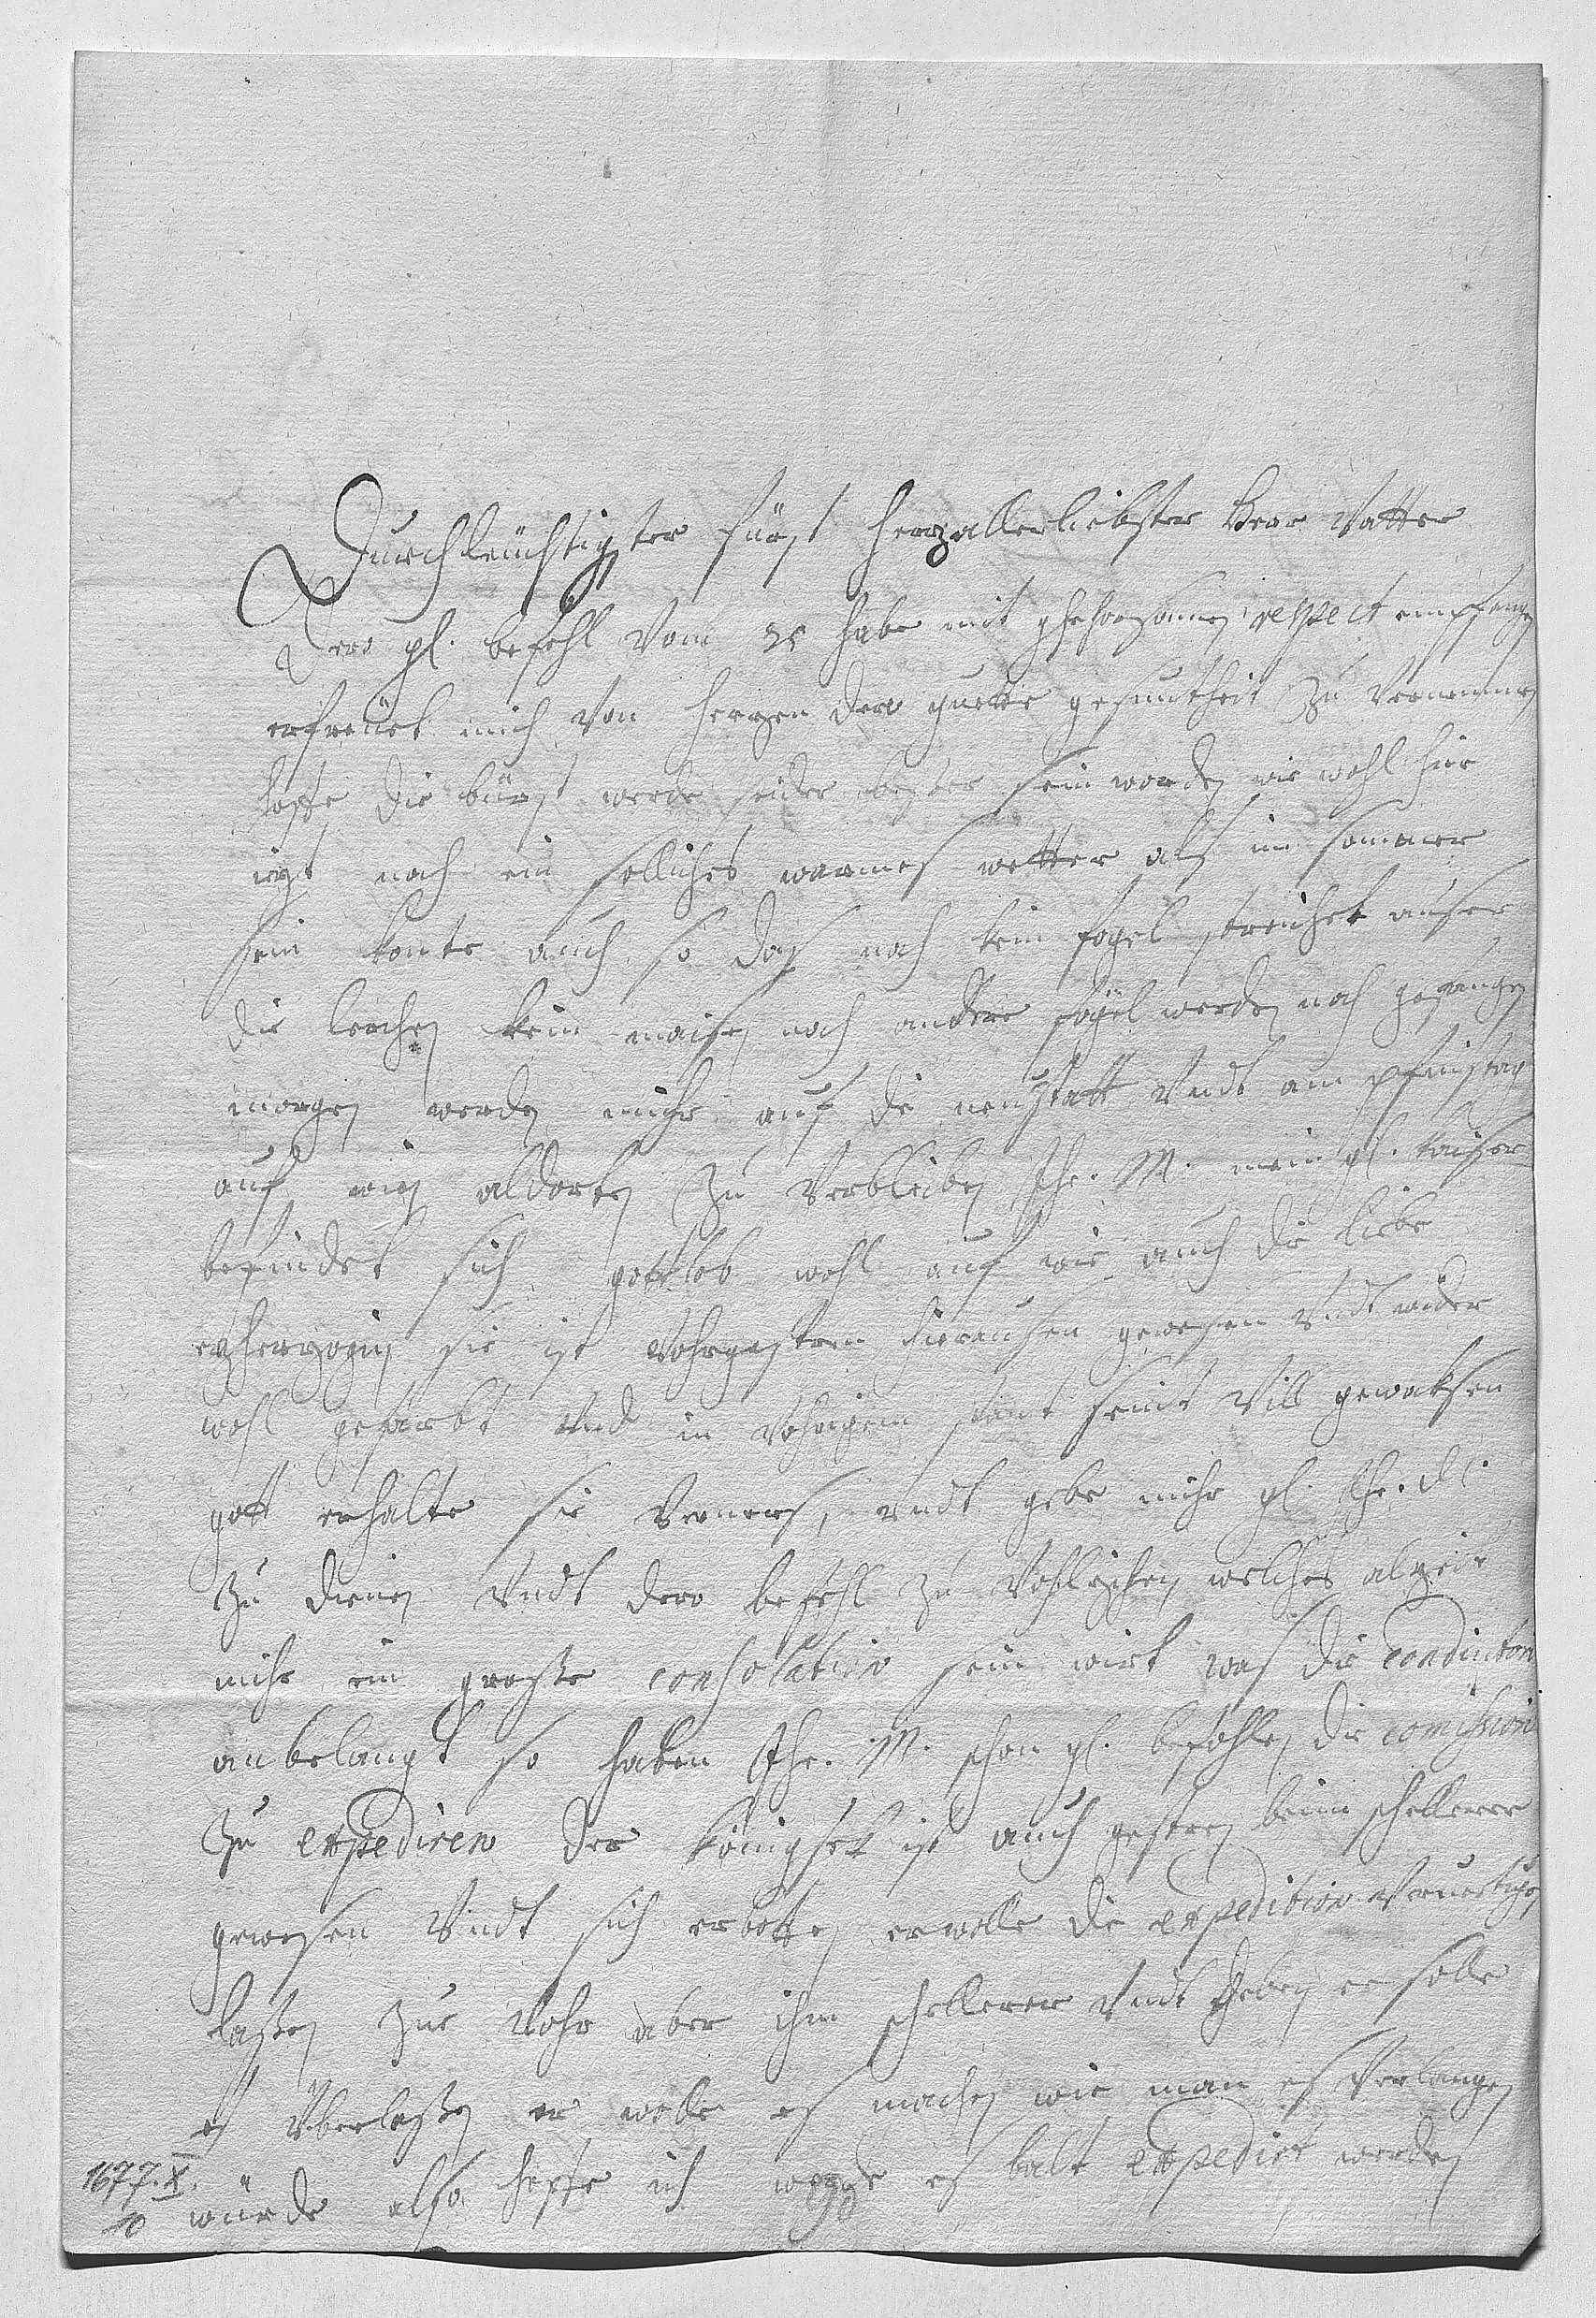 Durchleüchtigster fürst herzallerliebster Herr Vatter
Dero gl. befehl vom 25 habe mit gehorsamen respect empfangen
erfreüet mich von herzen dero guette gesuntheit zu vernemmen
hoffe die bürst werde seider besser sein worden wie wohl hier
izt noch ein solliches warmes wetter als im sommer
sein konte auch so das noch kein fogel streichet auser
die lerchen kein maisen noch andere fögel werden noch gefangen
morgen werden mihr auf die neustatt undt am pfinstag
auf wien aldorten zu verbleiben Ihr. M. mein gl. kaiser
befindet sich gottlob wohl auf wie auch die liebe
erzherzogin sie ist vohrgestern herausen gewesen undt wider
wohl gefärbt und in vohrigem stant seint vill gewaksen
gott erhalte sie verners, undt gebe mihr gl. Ehr. Dl.
zu dienen undt dero befehl zu vohlziehen welches alzeit
mihr ein große consolation sein wirt was die condicion
anbelangt so haben Ihr. M. schon gl. befohlen die comission
zu expediren der königsek ist auch gestern beim schellerer
gewesen undt sich erbotten er wolle die expedition
laßen zue vohr aber ihm schellerer undt er solle
es überlaßen er wolle es machen wie man es verlangen
würde also hoffe ich werde es balt expedirt werden
1677. X.
10